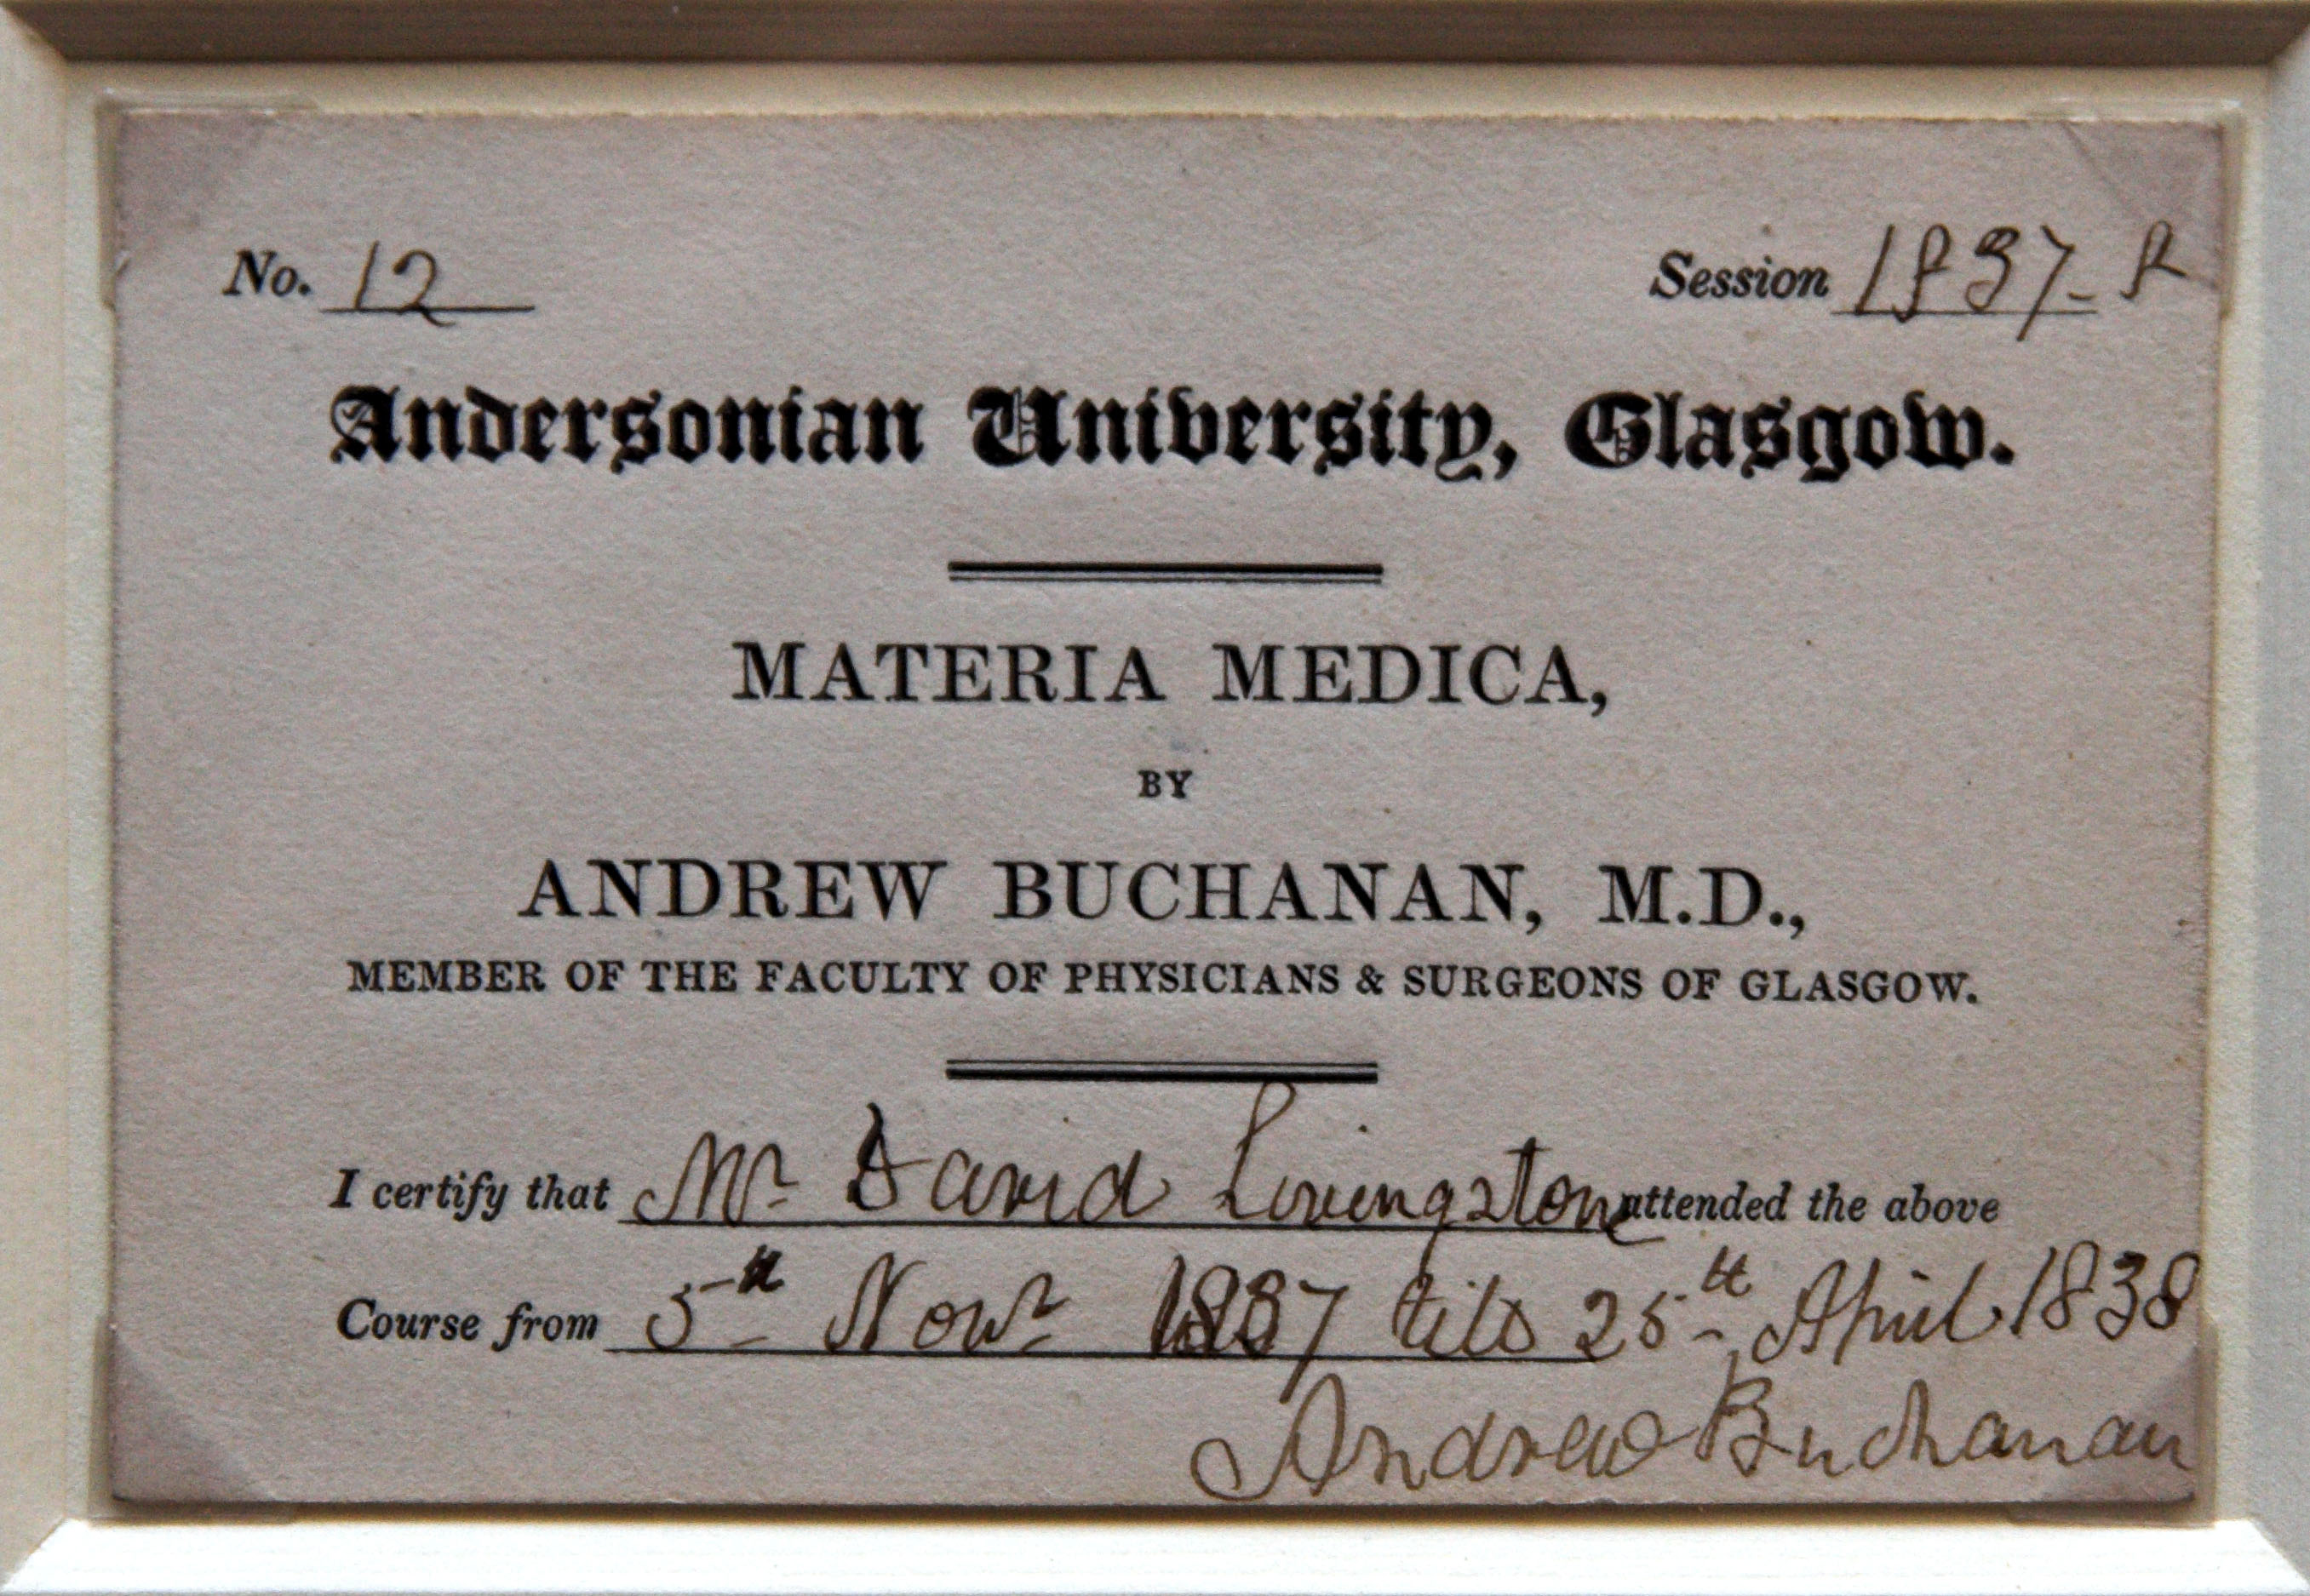 No. 12 Session 1837-8
Andersonian University, Glasgow.
MATERIA MEDICA,
BY
ANDREW BUCHANAN, M.D.,
MEMBER OF THE FACULTY OF PHYSICIANS & SURGEONS OF GLASGOW.
I certify that Mr David Livingstone attended the above
Course from 5th Novr 1837 till 25th April 1838
Andrew Buchanan